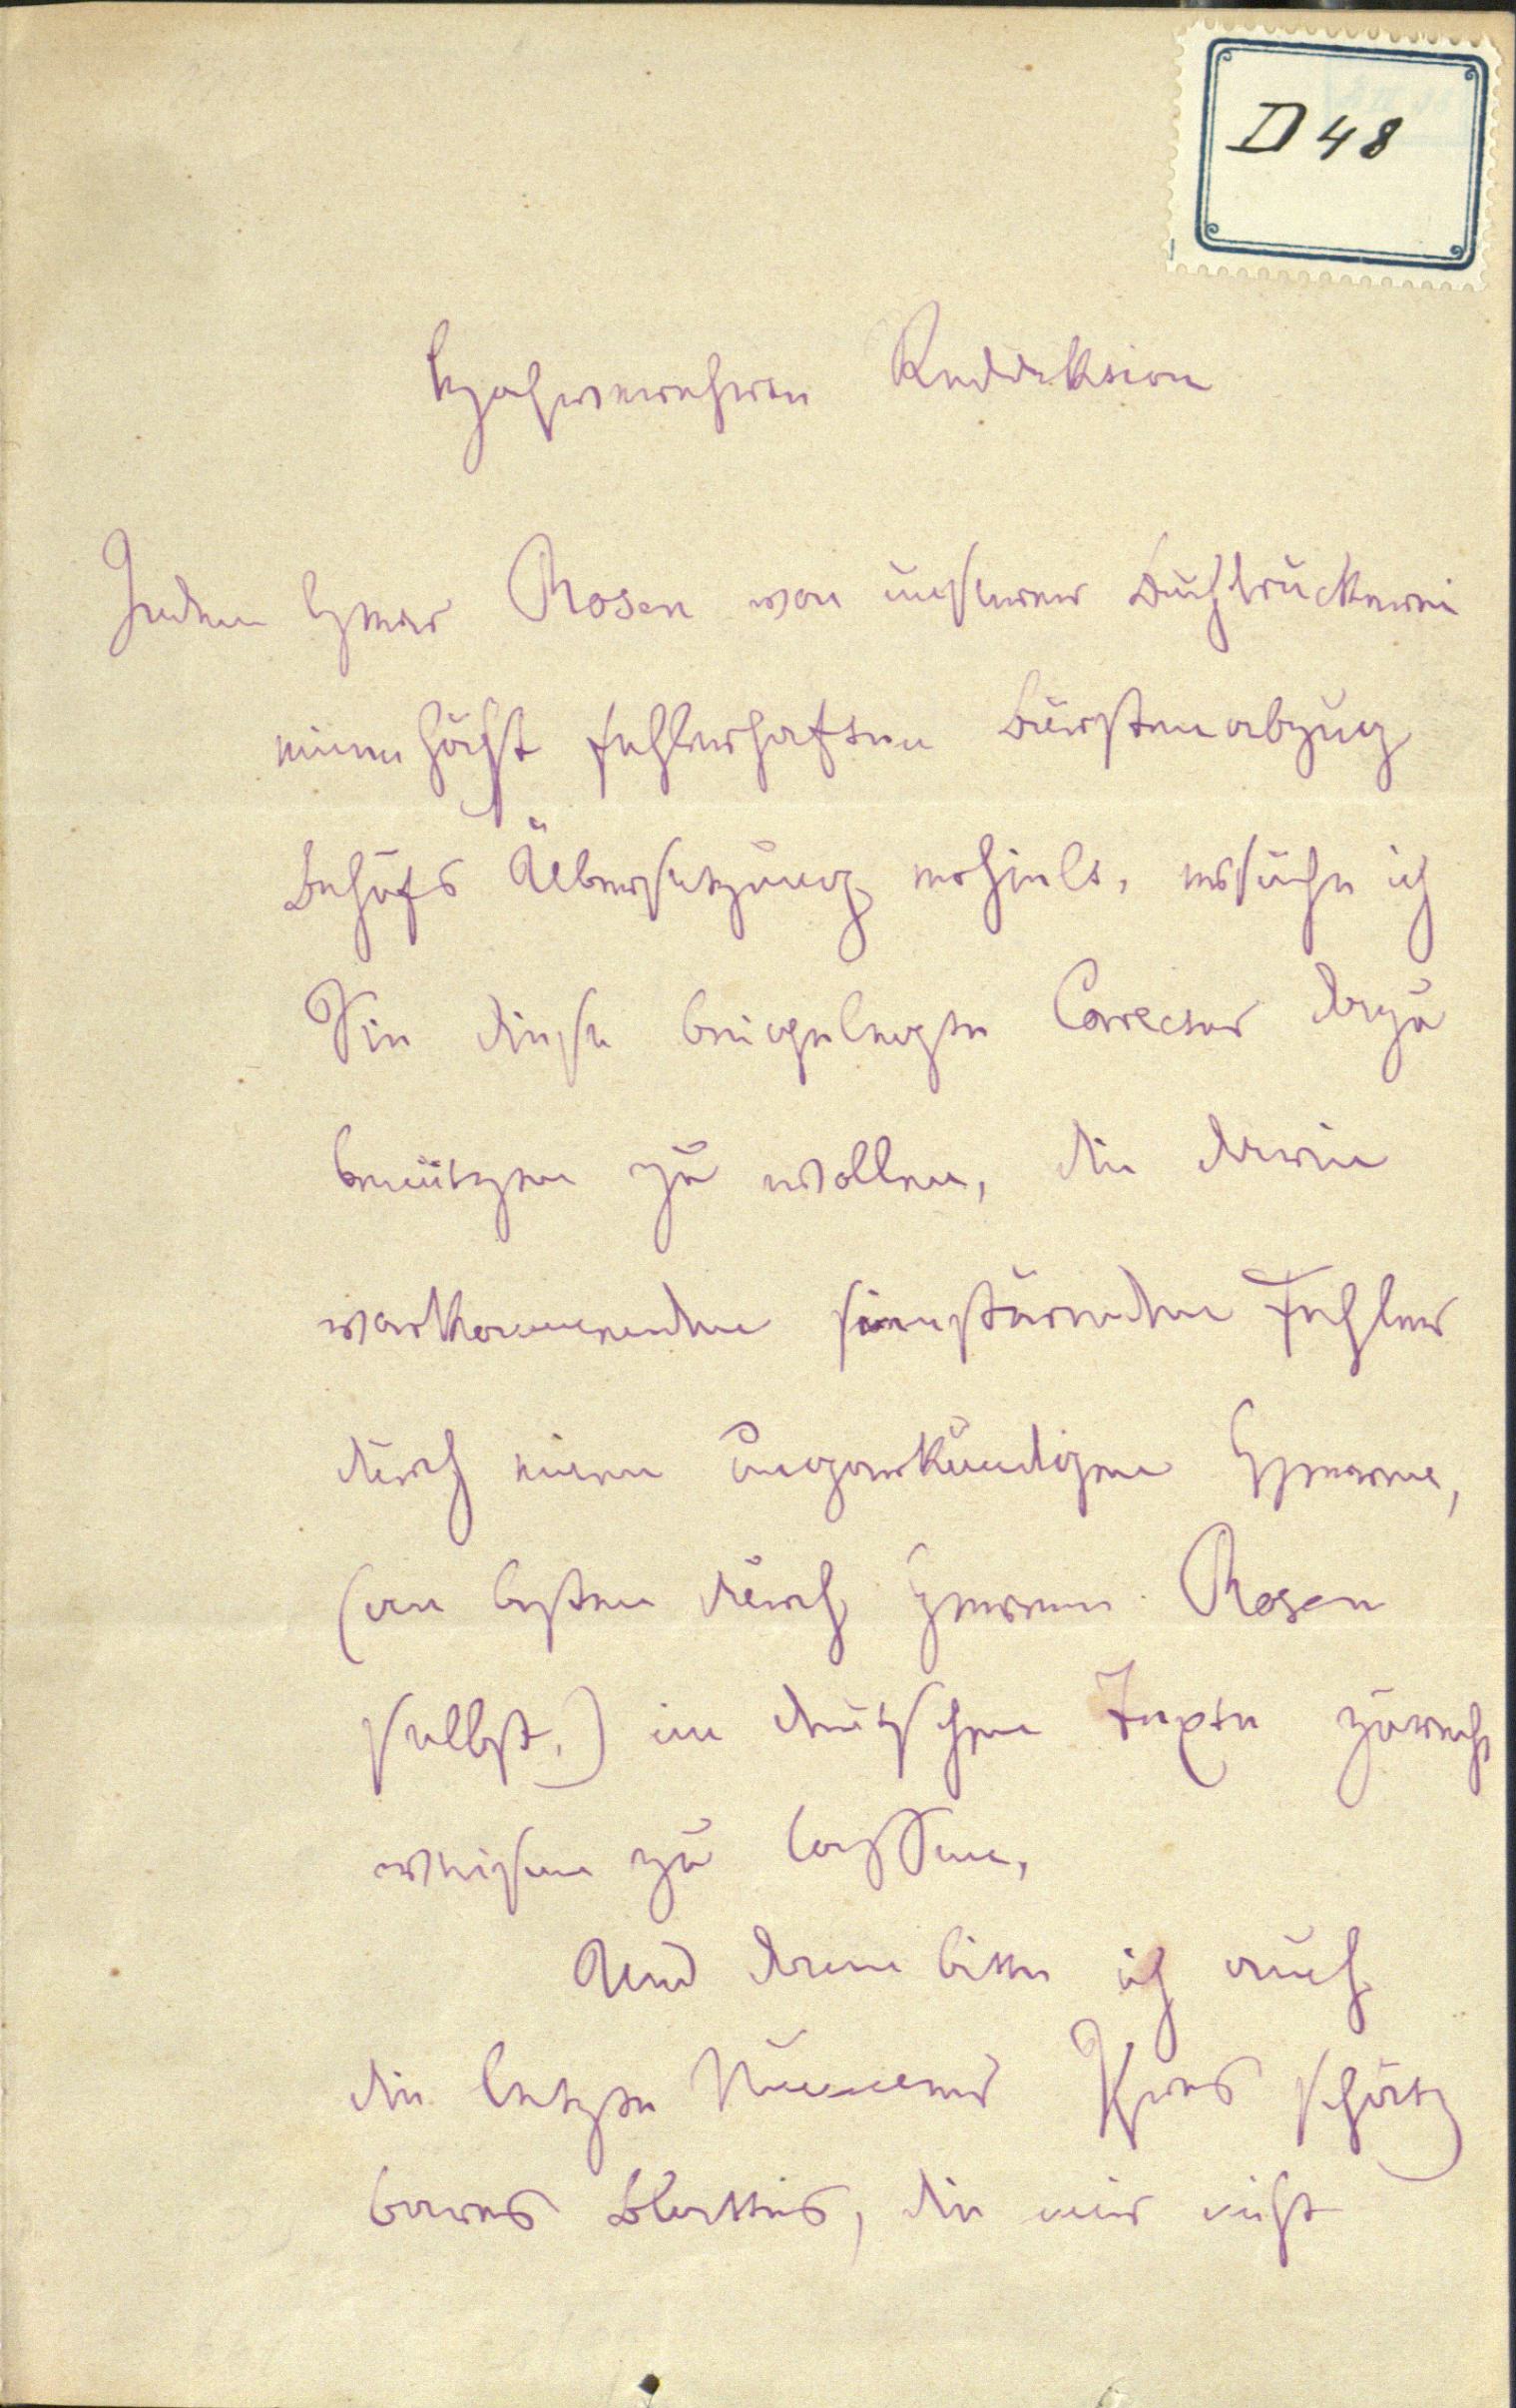 D 48
Hochverehrten Reddaktion
Indem Herr Rosen von unserer Buchdruckerei
einen höchst fehlerhaften Bürstenabzug
Behufs Übersetzung erhielt, ersuche ich
Sie diese beigelegte Corectur dazu
benützen zu wollen, die darin
vorkommenden sinnstörenden Fehler
durch einen ungarkundigen Herrn,
(am besten durch Herrn Rosen
selbst,) im deutschen Texte zurecht
weisen zu lassen,
Und dann bitte ich auch
die letzte Nummer Ihres schätz
bares Blattes, die mir nicht